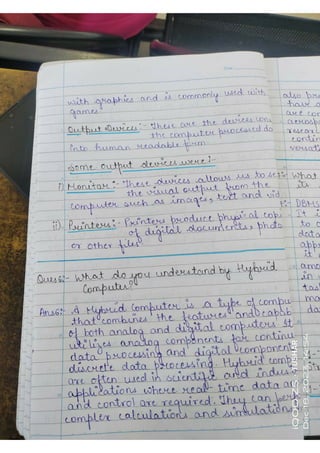 with graphics and is commonly used with
games.
Output Devices:- These are the devices
the computer processed
into human readable form.
Some output devices were:-
i) Monitor:- These devices allows us to see
the visual output from the
computer such as images, text and vid
ii) Printers:- Printers produce physical cop
of digital documents, photo
or other files
Ques6:- What do you understand by Hybrid
Computer?
Ans6:- A Hybrid Computer is a type of compu
that combines the features and capab
of both analog and digital computers. It
utilizes analog components for continu
data processing and digital components
discrete data processing. Hybrid comp
are often used in scientific and indus
applications where real-time data
and control are required. They can per
complex calculations and simulation
also
have
are con
aerosp
resear
contin
versati
What
its
DBMS
It i
to c
data
app
it
amo
in
tas
ma
da